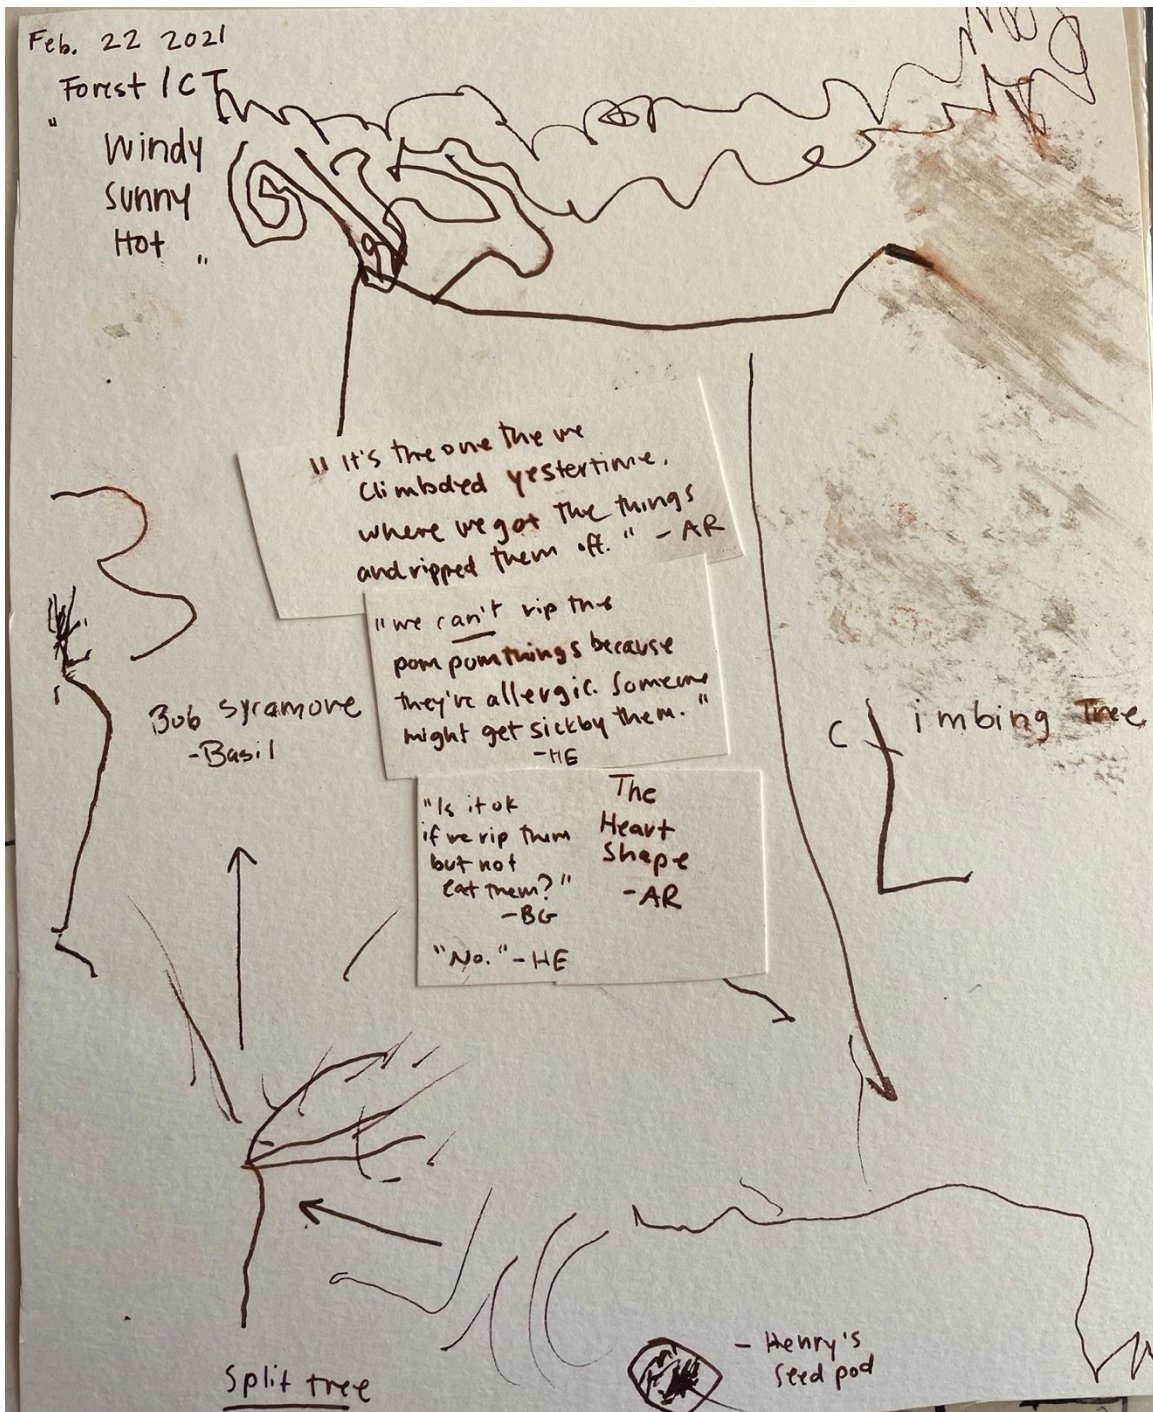 Feb. 22 2021
Forest / CT
"Windy
Sunny
Hot"
"It's the one the we
climbded yestertime,
where we got the things
and ripped them off." - AR
"we can't rip the
pom pom things because
they're allergic. Someone
might get sick by them."
- HE
Bob Sycamore
- Basil
Climbing Tree
"Is it ok
if we rip them
but not
eat them?"
- BG
"No." - HE
The
Heart
Shape
- AR
Split tree
- Henry's
seed pod